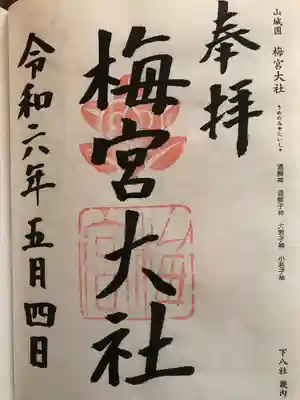 山城国 梅宮大社
うめのみやたいしゃ
酒解神 酒解子神 大若子神 小若子神
下八社 畿内
奉拝
梅宮大社
令和六年五月四日